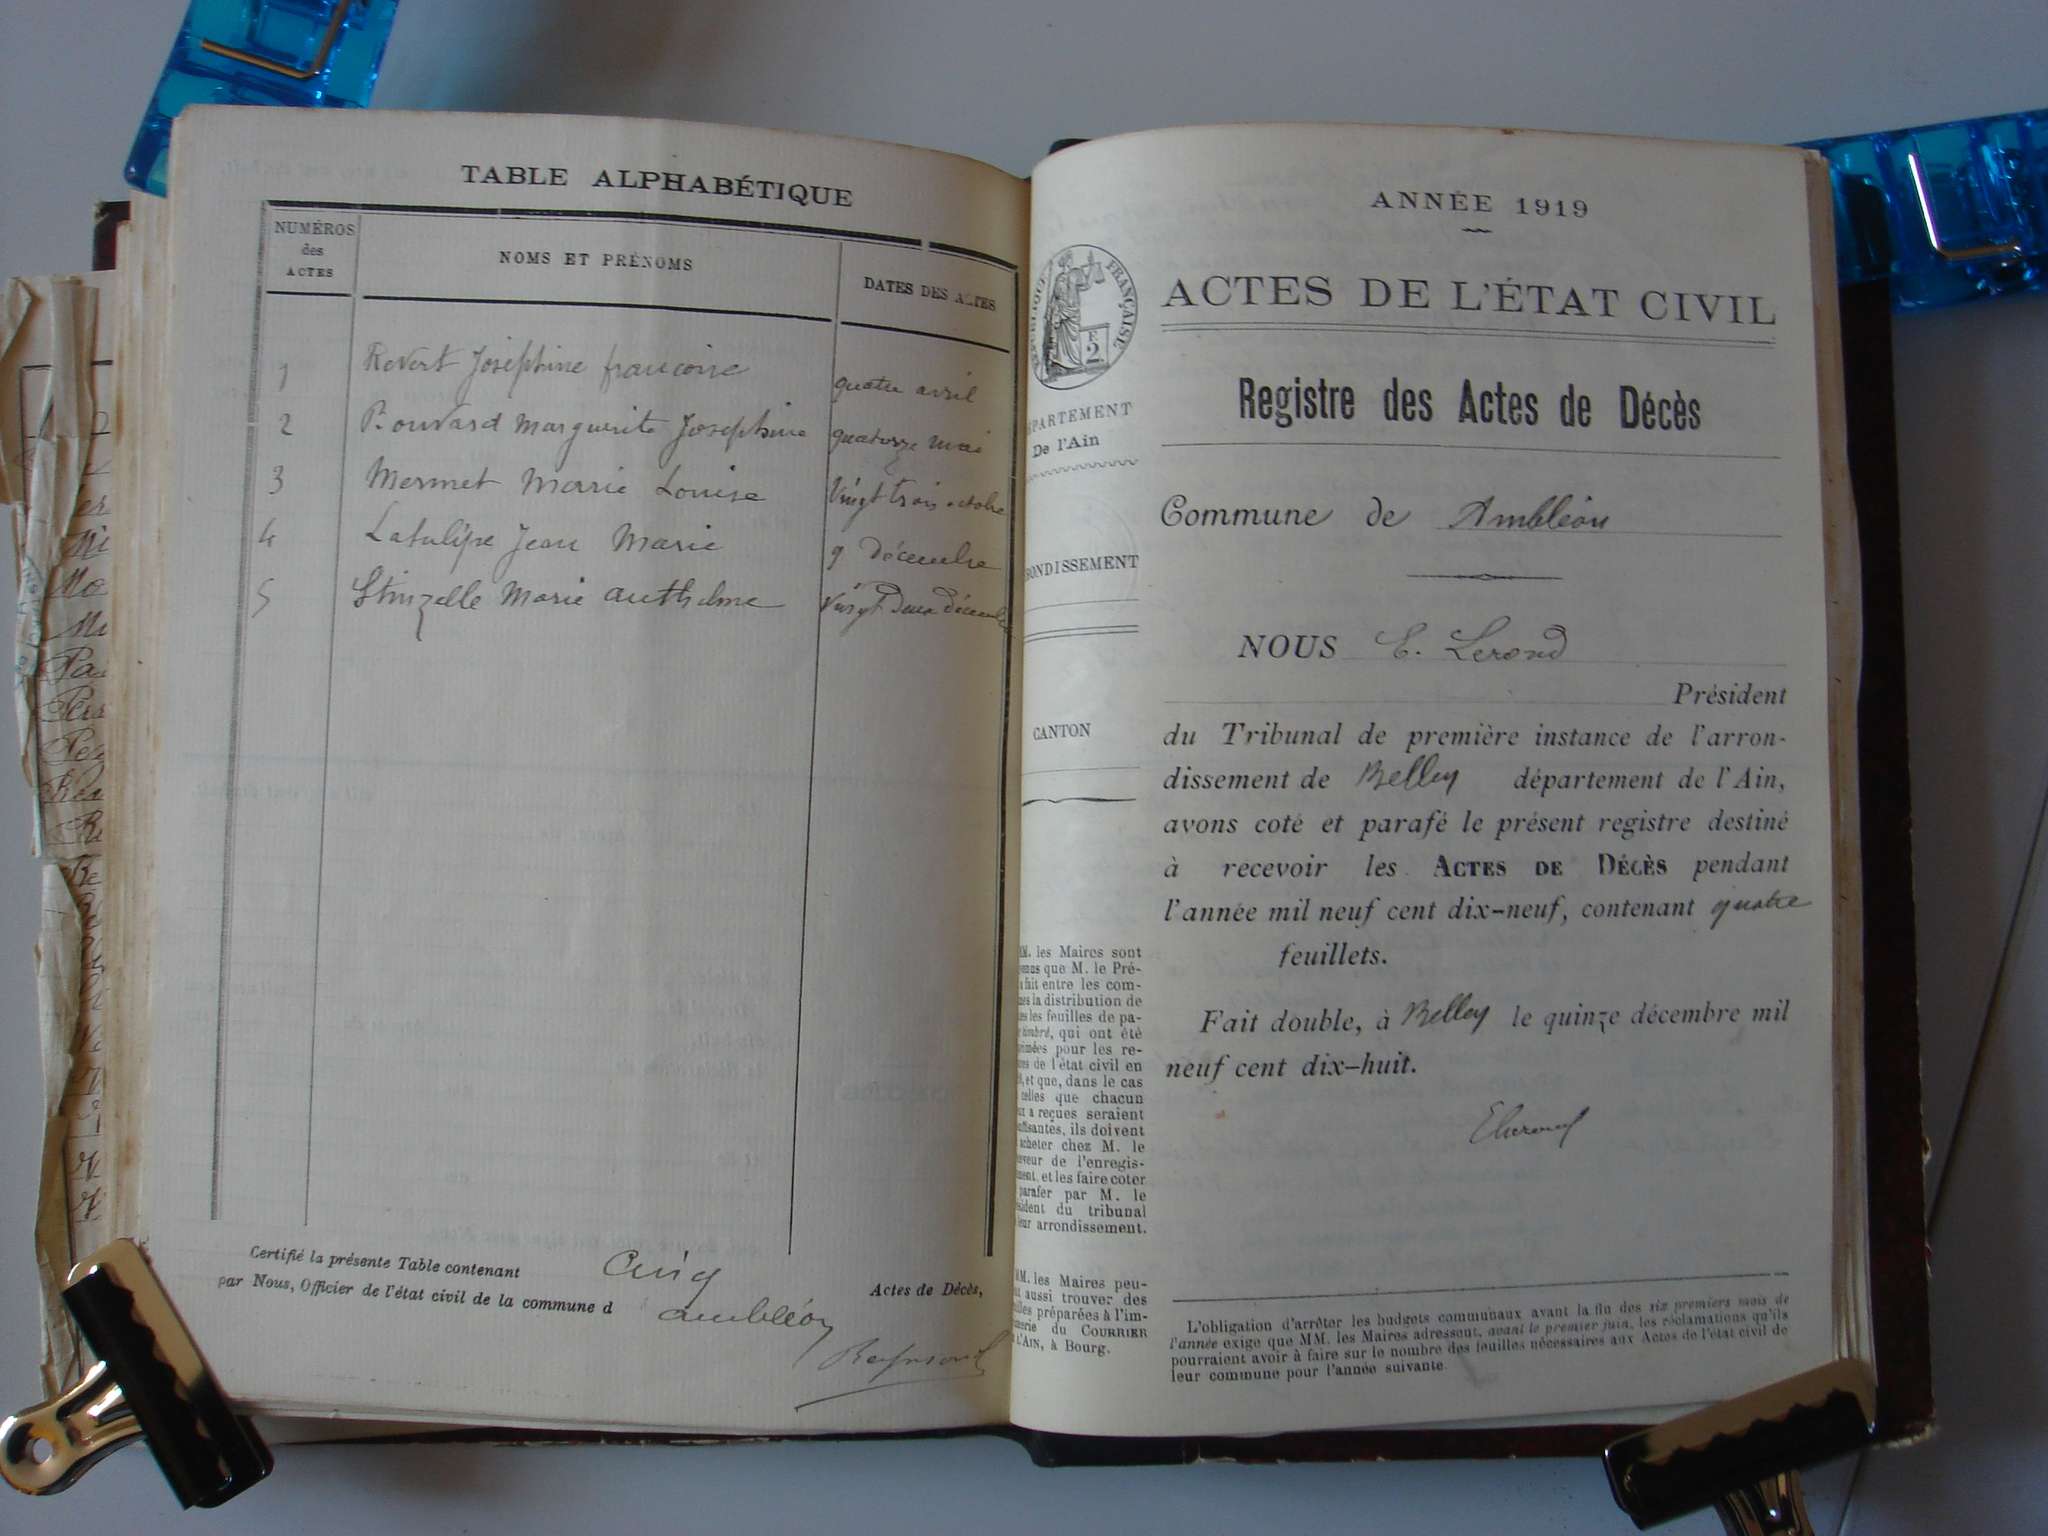 TABLE ALPHABÉTIQUE
NUMÉROS des ACTES
NOMS ET PRÉNOMS
DATES DES ACTES
1 Revert Joséphine françoise quatre avril
2 Bouvard Marguerite Joséphine quatorze mai
3 Mermet Marie Louise Vingt trois octobre
4 Latulipe Jean Marie 9 décembre
5 Marie anthelme Vingt deux décembre
Certifié la présente Table contenant Cinq Actes de Décès,
par Nous, Officier de l'état civil de la commune d ambléon
Reymond
RÉPUBLIQUE FRANÇAISE
F.
2
ÉPARTEMENT
De l'Ain
ONDISSEMENT
CANTON
MM. les Maires sont
enus que M. le Pré-
a fait entre les com-
nes la distribution de
es les feuilles de pa-
timbré, qui ont été
rimées pour les re-
res de l'état civil en
, et que, dans le cas
celles que chacun
ux a reçues seraient
uffisantes, ils doivent
acheter chez M. le
eveur de l'enregis-
ment, et les faire coter
parafer par M. le
sident du tribunal
leur arrondissement.
MM. les Maires peu-
nt aussi trouver des
illes préparées à l'im-
merie du COURRIER
L'AIN, à Bourg.
ANNÉE 1919
ACTES DE L'ÉTAT CIVIL
Registre des Actes de Décès
Commune de Ambléon
NOUS E. Lerond
Président
du Tribunal de première instance de l'arron-
dissement de Belley département de l'Ain,
avons coté et parafé le présent registre destiné
à recevoir les ACTES DE DÉCÈS pendant
l'année mil neuf cent dix-neuf, contenant quatre
feuillets.
Fait double, à Belley le quinze décembre mil
neuf cent dix-huit.
ELerond
L'obligation d'arrêter les budgets communaux avant la fin des six premiers mois de
l'année exige que MM. les Maires adressent, avant le premier juin, les réclamations qu'ils
pourraient avoir à faire sur le nombre des feuilles nécessaires aux Actes de l'état civil de
leur commune pour l'année suivante.